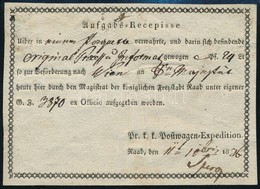 Aufgabs-Recepisse
Ueber in einem verwahrte, und darin sich befindende
Original gewogen 24
so zur Beförderung nach Wien an
heute hier durch den Magistrat der königlichen Freystadt Raab unter eigener
G. B. 3370 ex Officio aufgegeben worden.
Pr. k. k. Postwagen-Expedition.
Raab, 11 18